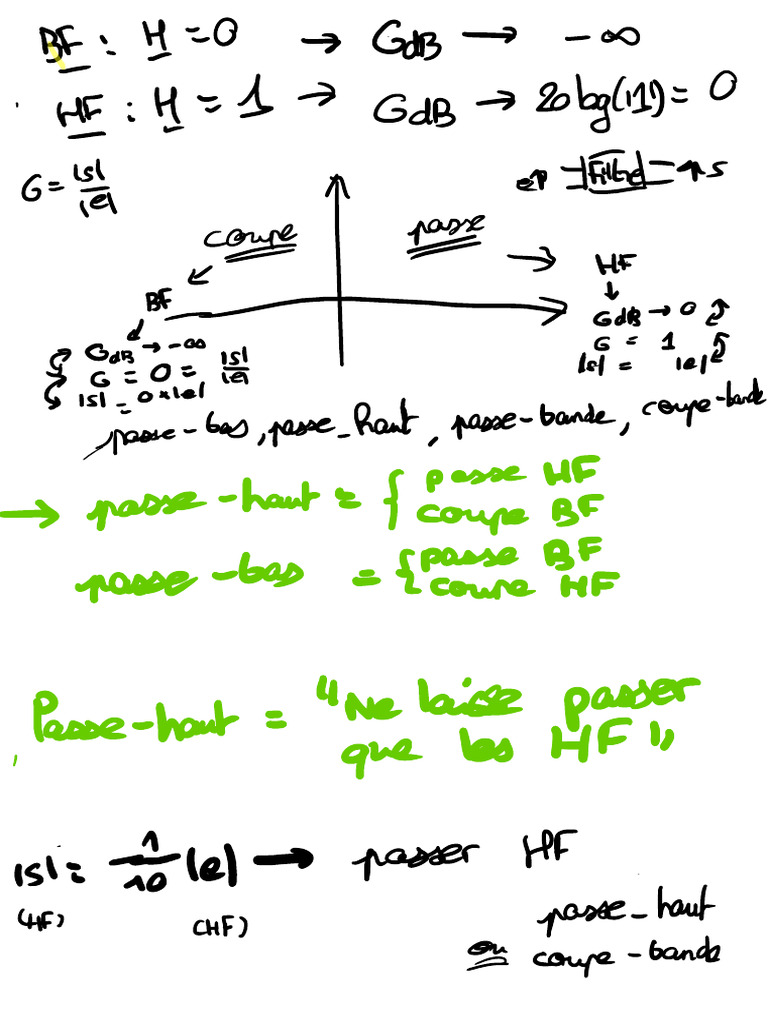 BF : H = 0 → GdB → -∞
HF : H = 1 → GdB → 20 log(|1|) = 0
G = |s|/|e|
e↑ Filtre ↑s
coupe
passe
BF
HF
GdB → -∞
G = 0 = |s|/|e|
|s| = 0 × |e|
GdB → 0
G = 1
|s| = |e|
passe-bas, passe-haut, passe-bande, coupe-bande
→ passe-haut = { passe HF
coupe BF
passe-bas = { passe BF
coupe HF
Passe-haut = "Ne laisse passer
que les HF"
|s| = 1/10 |e| → passer HF
(HF) (HF)
passe-haut
ou coupe-bande